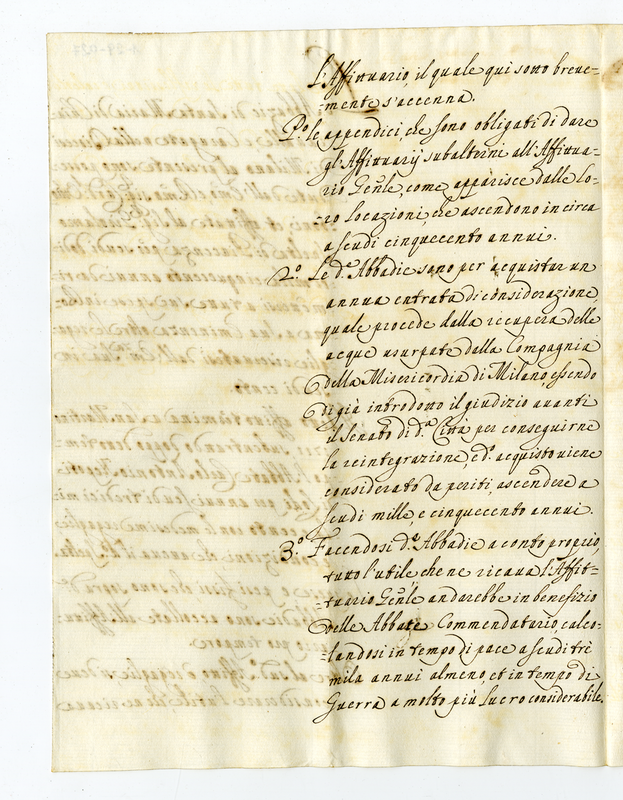 l'Affittuario, il quale qui sotto breue=
=mente s'accenna.
P.º le appendici, che sono obligati di dare
gl'Affittuarij subalterni all'Affittua=
rio Gen̄le, come apparisce dalle Lo=
=ro Locazioni, che ascendono in circa
a scudi cinquecento annui.
2.º Le d.e Abbadie sono per acquistar un
annua entrata di considerazione,
quale procede dalla recupera delle
acque usurpate dalla Compagnia
della Misericordia di Milano, essendo
di già introdotto il giudizio auanti
il Senato di d.a Città per conseguirne
la reintegrazione, e d.o acquisto uiene
considerato da periti, ascendere a
scudi mille, e cinquecento annui.
3.º Facendosi d.e Abbadie a conto proprio,
tutto l'utile, che ne ricaua l'Affit=
=tuario Gen̄le andarebbe in benefizio
delle Abbate Commendatario, calco=
=landosi in tempo di pace a scudi trè
mila annui almeno, et in tempo di
Guerra a molto più lucro considerabile.